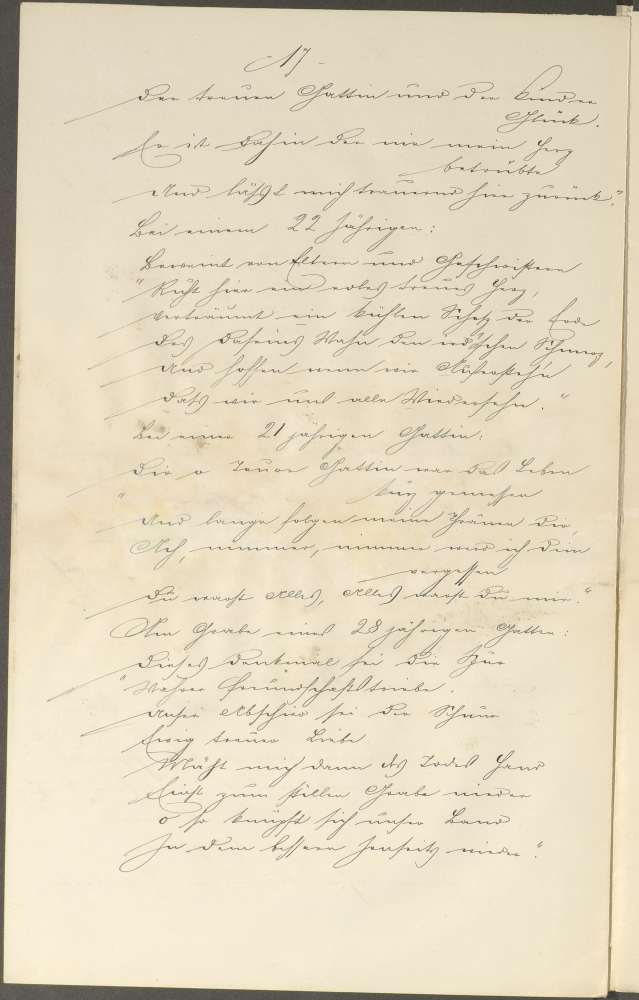 17
Der treuen Gattin und der Kinder
Glück.
Er ist dahin der nie mein Herz
betrübte
Und läßt mich trauernd hier zurück."
Bei einem 22 jährigen:
Beweint von Eltern und Geschwistern
"Ruht hier ein edles treues Herz,
verträumt ein kühlen Schoß der Erde
Des Daseins Wahn den irdischen Schmerz,
Und hoffen wenn wir Auferstehn
Daß wir uns alle Wiedersehn."
Bei einer 21 jährigen Gattin:
Dir o Teure Gattin war das Leben
"kurz gemessen
Und lange folgen meine Thränen Dir,
Ach, nimmer, nimmer werd ich Dein
vergessen
Du warst Alles, Alles warst Du mir."
Am Grabe eines 28 jährigen Gatten:
Dieses Denkmal sei die Spur
"Wahrer Freundschaftstriebe.
Unser Abschied sei der Schwur
Ewig treuer Liebe
Mäht mich dann des Todes Hand
Einst zum stillen Grabe nieder
O so knüpft sich unser Band
In dem bessern Jenseits wieder."